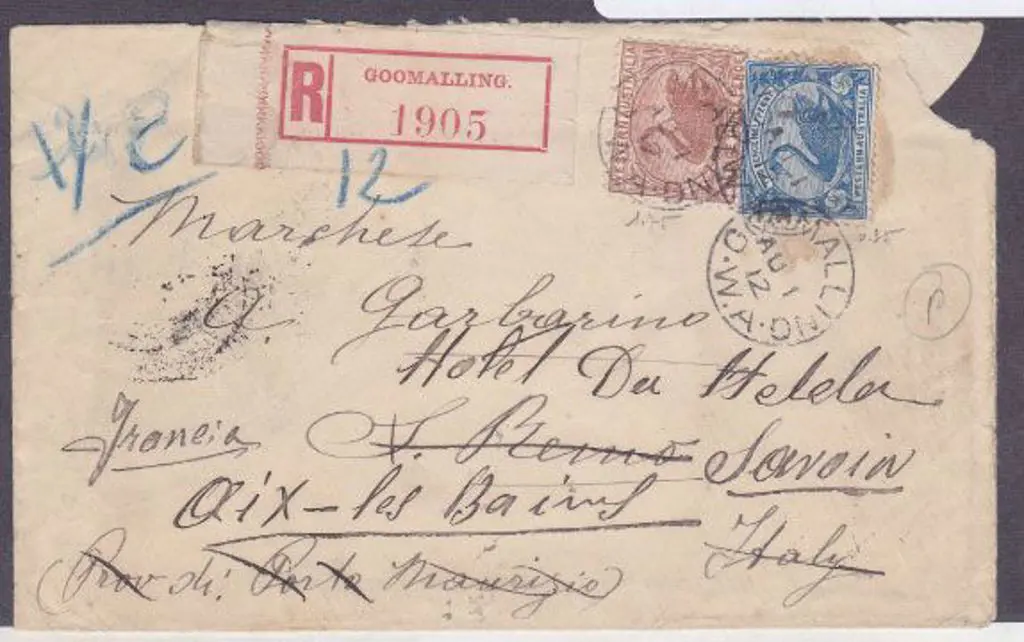 R GOOMALLING.
1905
12
WESTERN AUSTRALIA
WESTERN AUSTRALIA
GOOMALLING W.A.
AU 1
12
Marchese
A Garbarino
Hotel Du
Francia S. Remo Savoia
Aix-les Bains
Italy
(Prov di: Porto Maurizio)